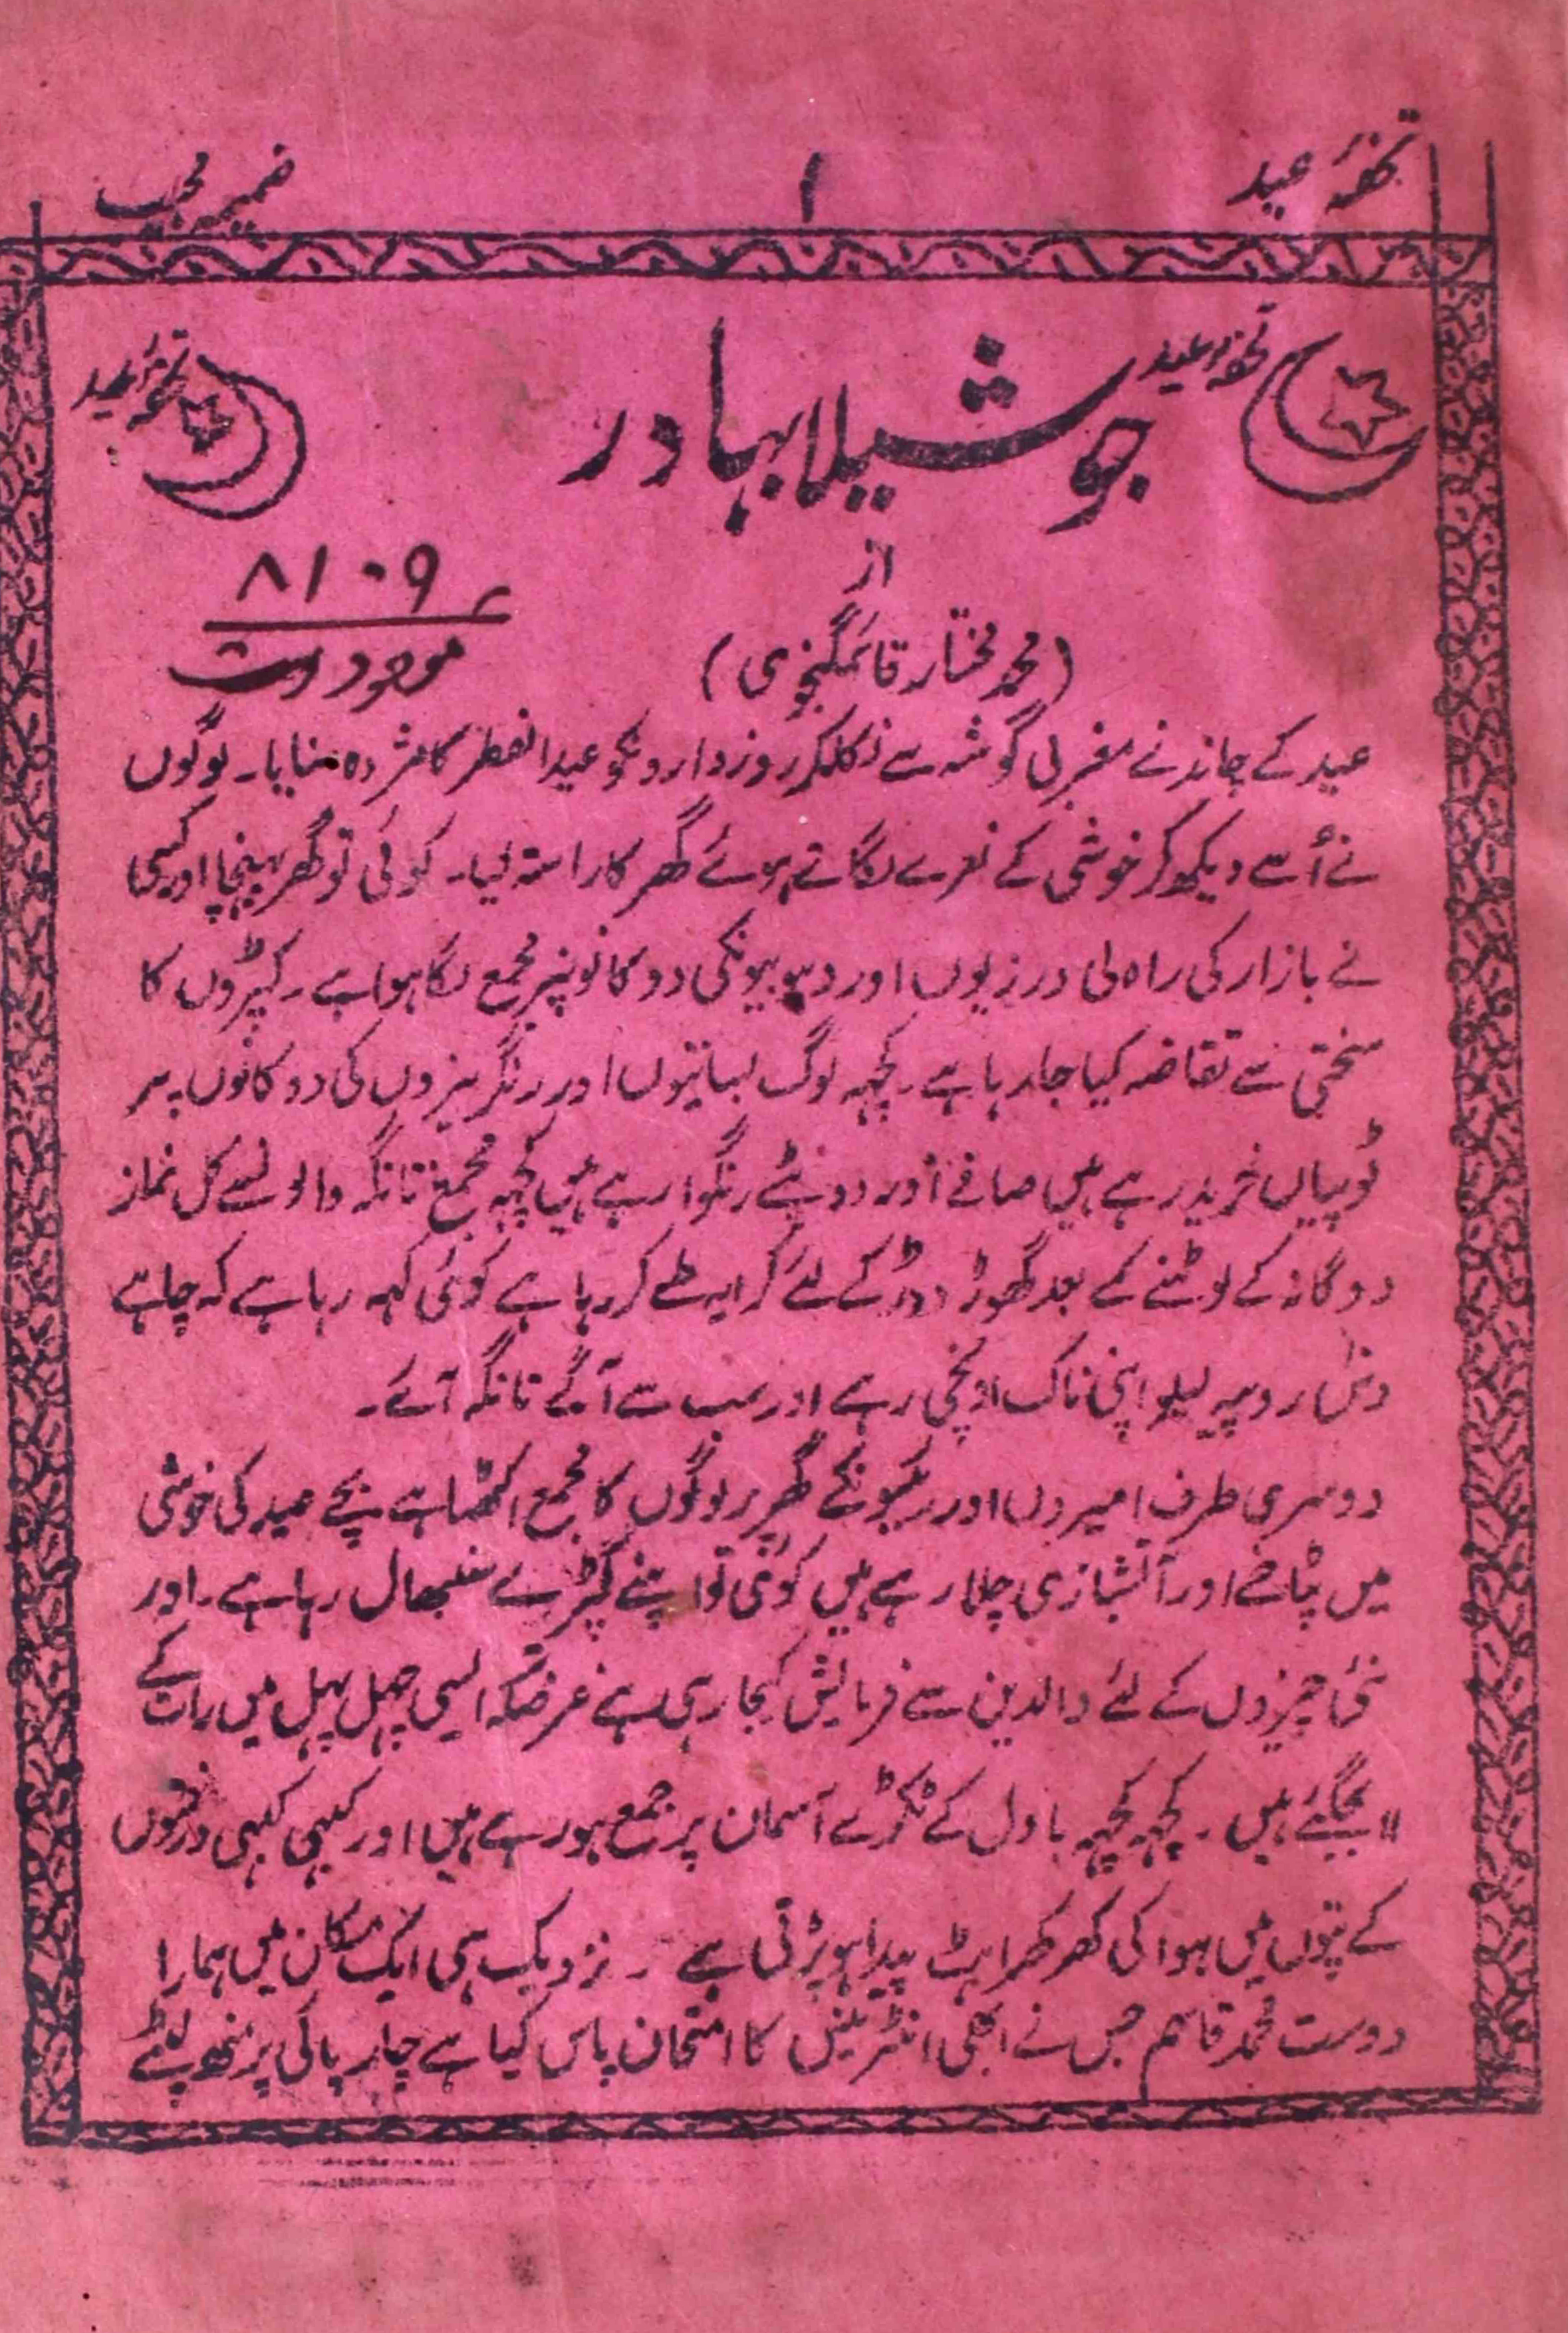 تحفۂ عید
۱
ضمیمہ مجیب
تحفۂ عید
جوشیلا بہادر
تحفۂ عید
از
(محمد مختار قائمگنجوی)
۸۱۰۹
موجود است
عید کے چاند نے مغربی گوشہ سے نکلکر روزدارونکو عید الفطر کا مژدہ سنایا۔ لوگوں
نے اُسے دیکھ کر خوشی کے نعرے لگاتے ہوئے گھر کا راستہ لیا۔ کوئی تو گھر پہنچا اور کسی
نے بازار کی راہ لی درزیوں اور دہوبیونکی دوکانونپر مجمع لگا ہوا ہے۔ کپڑوں کا
سختی سے تقاضہ کیا جا رہا ہے۔ کچہہ لوگ بساتیوں اور رنگریزوں کی دوکانوں پر
ٹوپیاں خرید رہے ہیں صافے اور دوپٹے رنگوا رہے ہیں کچہہ مجمع تانگہ والو نسے کل نماز
دوگانہ کے لوٹنے کے بعد گھوڑ دوڑ کے لئے کرایہ طے کر رہا ہے کوئی کہہ رہا ہے کہ چاہے
دس روپیہ لیلو اپنی ناک اونچی رہے اور سب سے آگے تانگہ آئے۔
دوسری طرف امیروں اور رئیسونکے گھر پر لوگوں کا مجمع اکٹھا ہے بچے عید کی خوشی
میں پٹاخے اور آتشبازی چلا رہے ہیں کوئی تو اپنے کپڑے سنبھال رہا ہے۔ اور
نئی چیزوں کے لئے والدین سے فرمایش کیجا رہی ہے غرضکہ ایسی چہل پہل میں رات کے
۱۱ بجگئے ہیں۔ کچہہ کچہہ بادل کے ٹکڑے آسمان پر جمع ہو رہے ہیں اور کبہی کبہی درختوں
کے پتوں میں ہوا کی کھرکھراہٹ پیدا ہو پڑتی ہے۔ نزدیک ہی ایک مکان میں ہمارا
دوست محمد قاسم جس نے ابھی انٹرینس کا امتحان پاس کیا ہے چارپائی پر منھ لپٹے